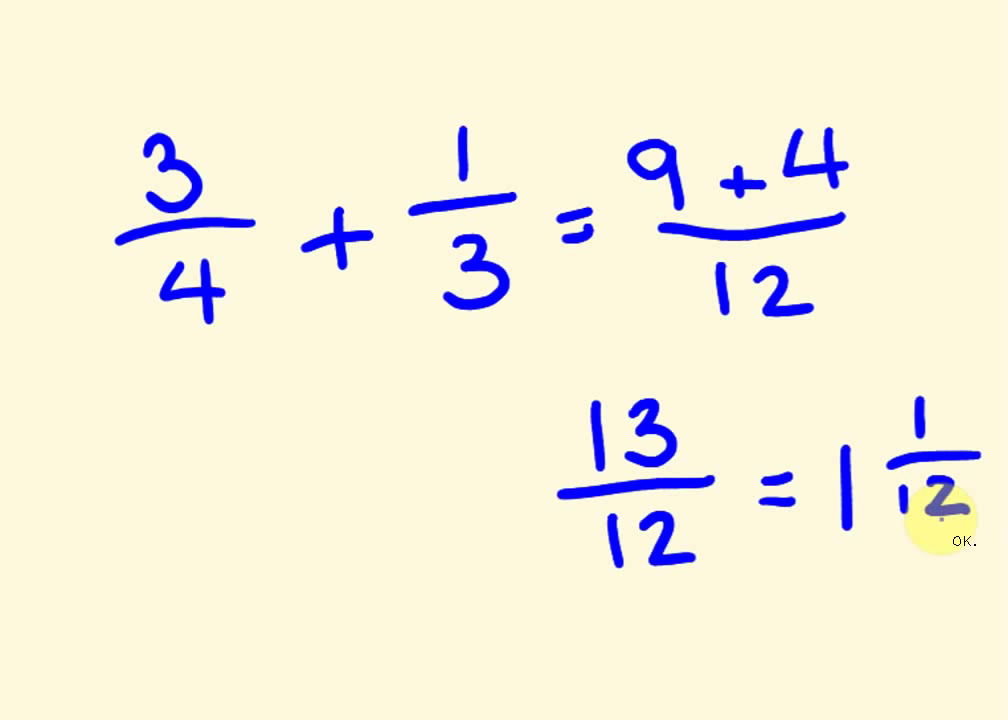 3/4 + 1/3 = 9 + 4/12
13/12 = 1 1/12
OK.